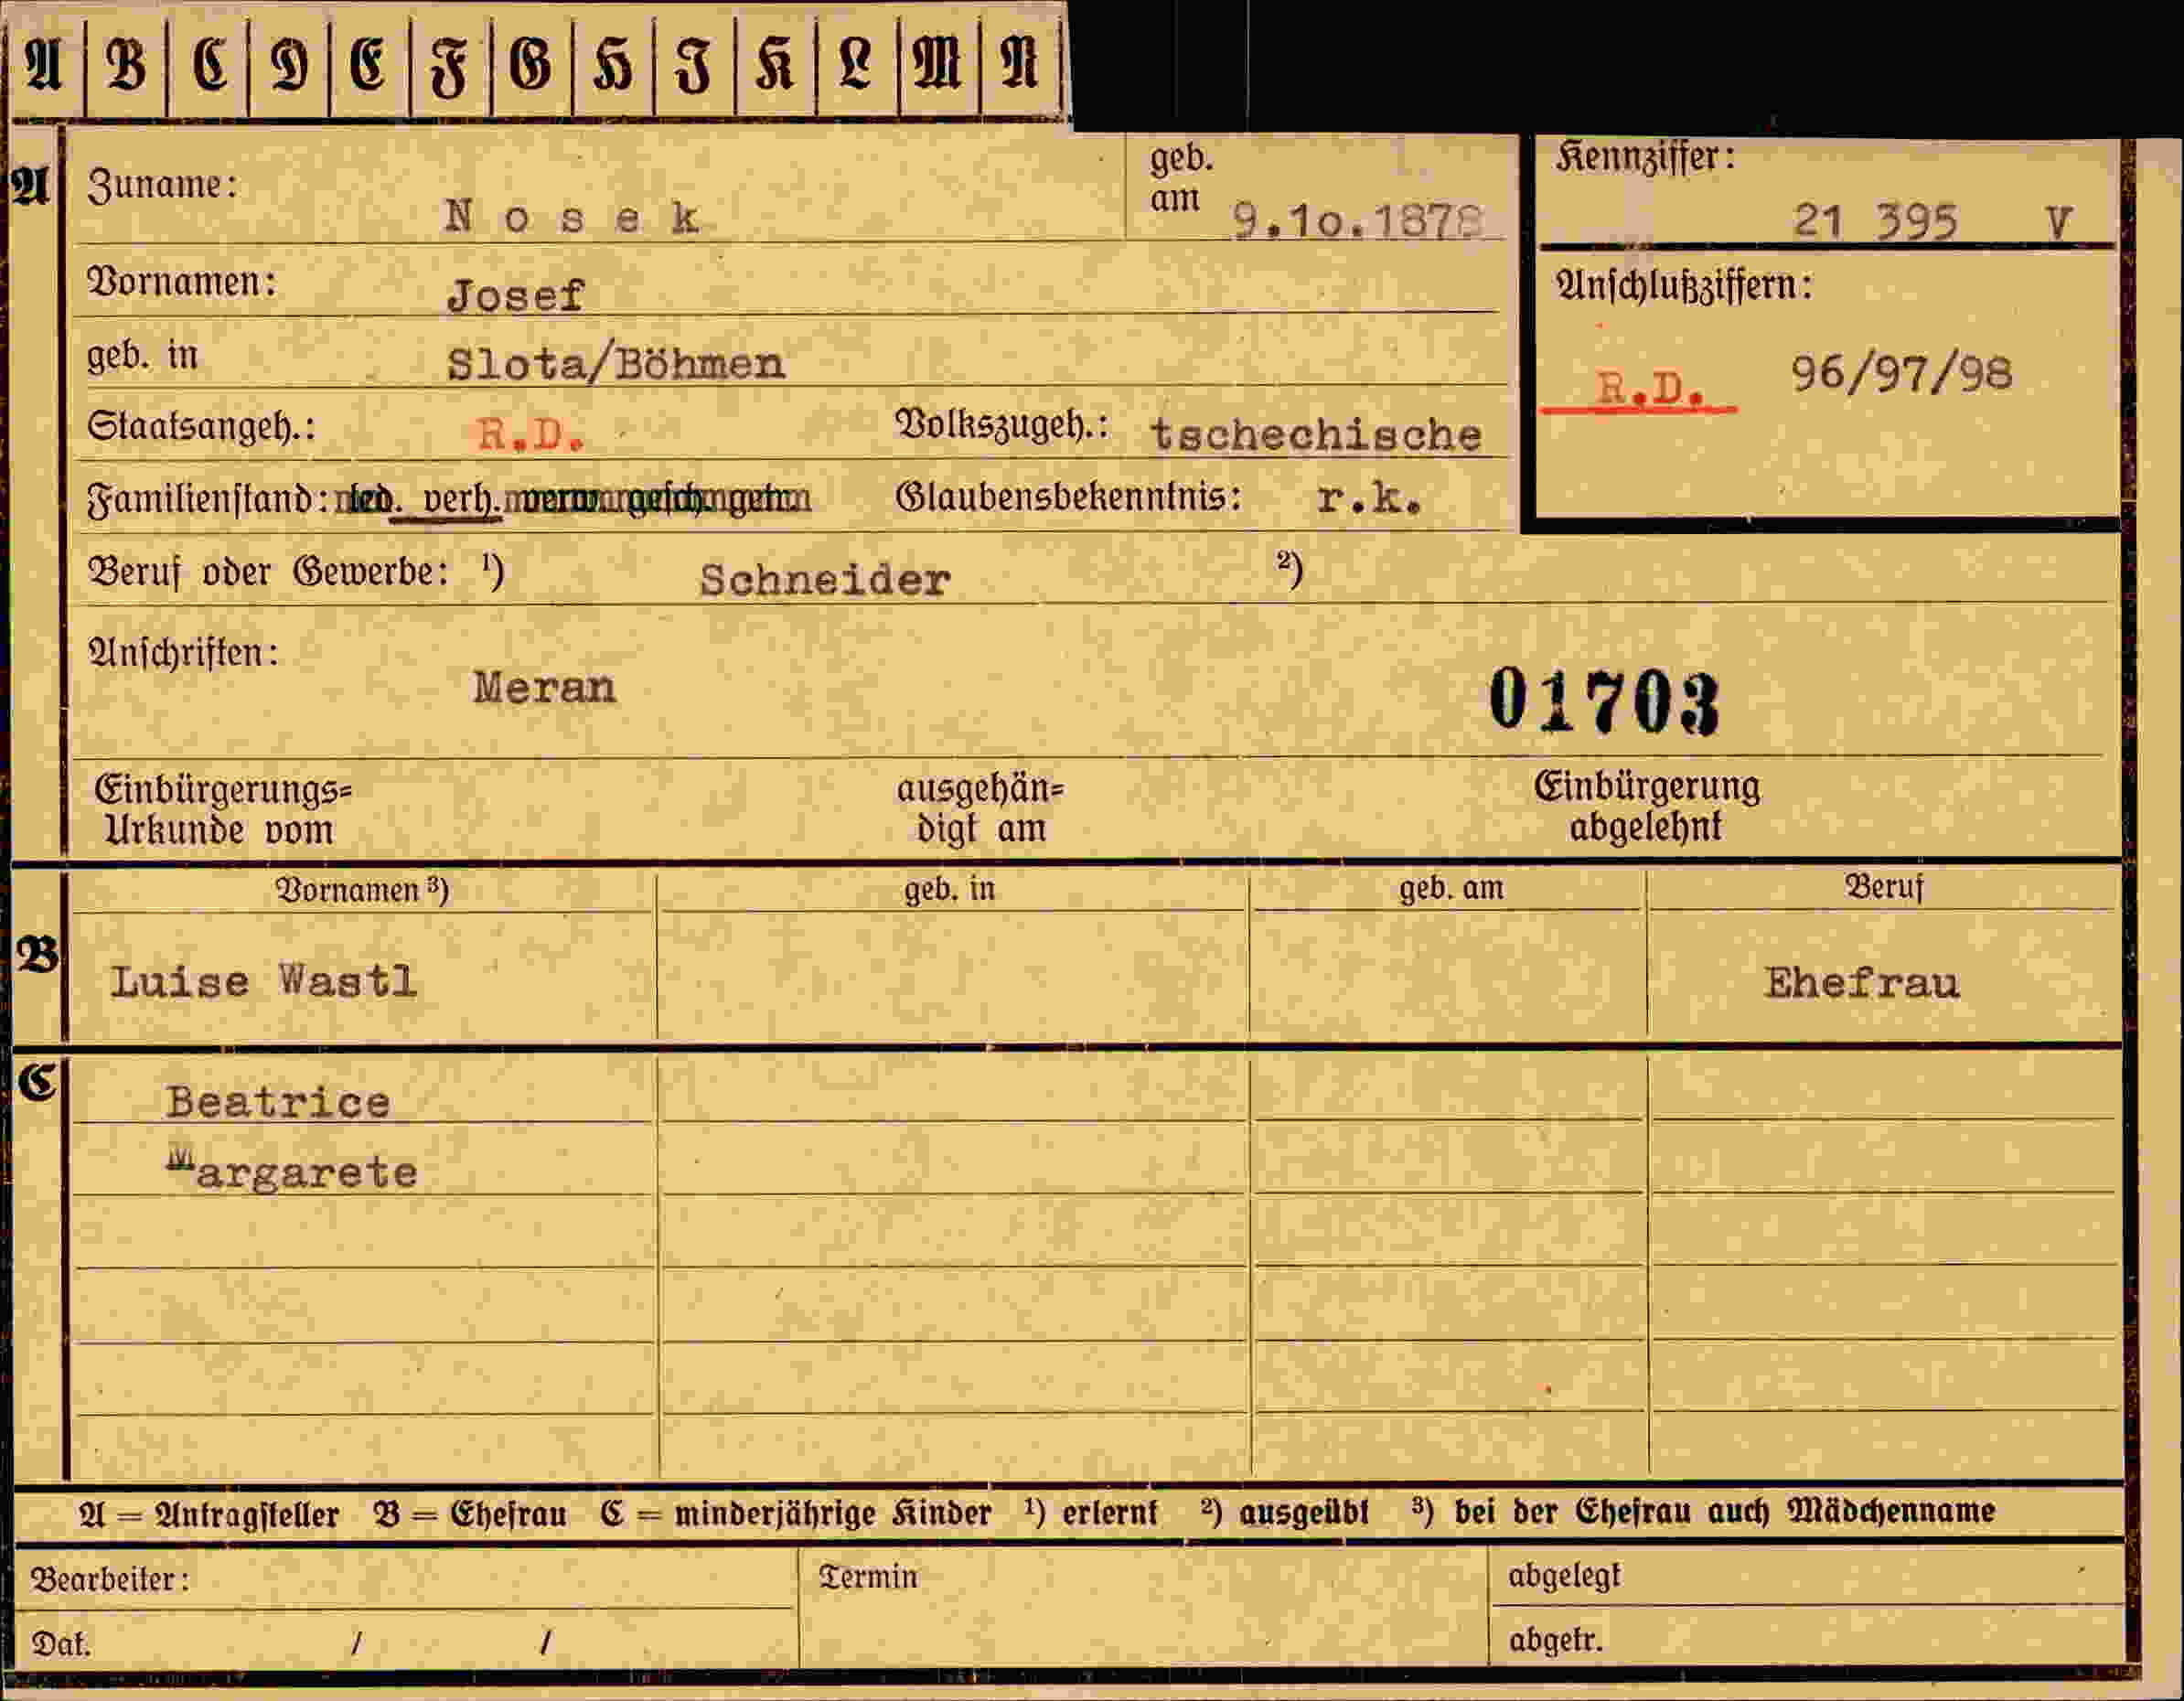 A B C D E F G H I K L M N
A Zuname: Nosek geb. am 9.10.1878 Kennziffer: 21 395 V
Vornamen: Josef Anschlußziffern:
geb. in Slota/Böhmen R.D. 96/97/98
Staatsangeh.: R.D. Volkszugeh.: tschechische
Familienstand: verh. Glaubensbekenntnis: r.k.
Beruf oder Gewerbe: ¹) Schneider ²)
Anschriften:
Meran 01703
Einbürgerungs= ausgehän= Einbürgerung
Urkunde vom digt am abgelehnt
Vornamen ³) geb. in geb. am Beruf
B Luise Wastl Ehefrau
C Beatrice
Margarete
A = Antragsteller B = Ehefrau C = minderjährige Kinder ¹) erlernt ²) ausgeübt ³) bei der Ehefrau auch Mädchenname
Bearbeiter: Termin abgelegt
Dat. / / abgetr.